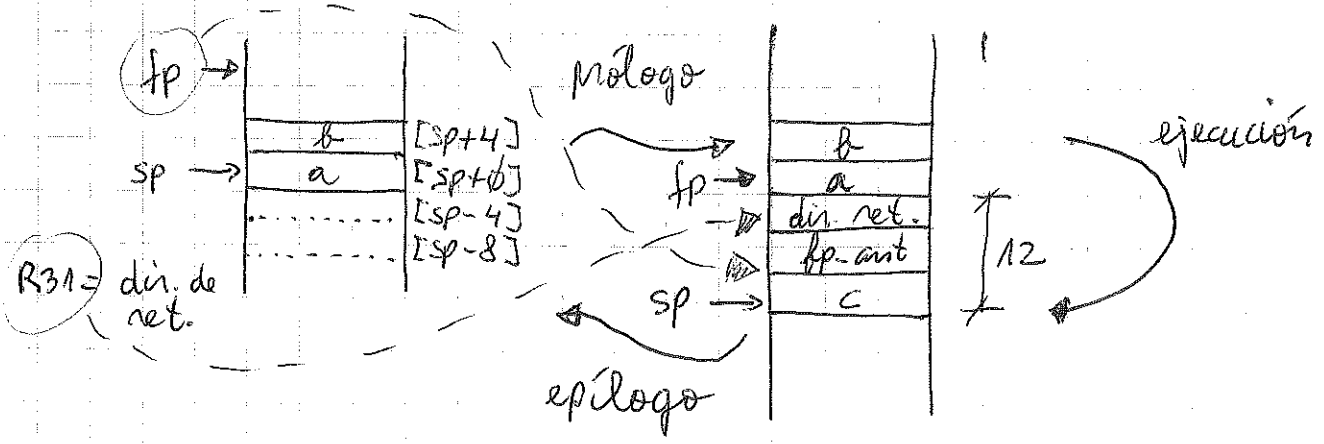 fp
b [sp+4]
sp a [sp+0]
[sp-4]
[sp-8]
R31= dir. de
ret.
prólogo
epílogo
b
fp a
dir. ret.
fp-ant
sp c
12
ejecución